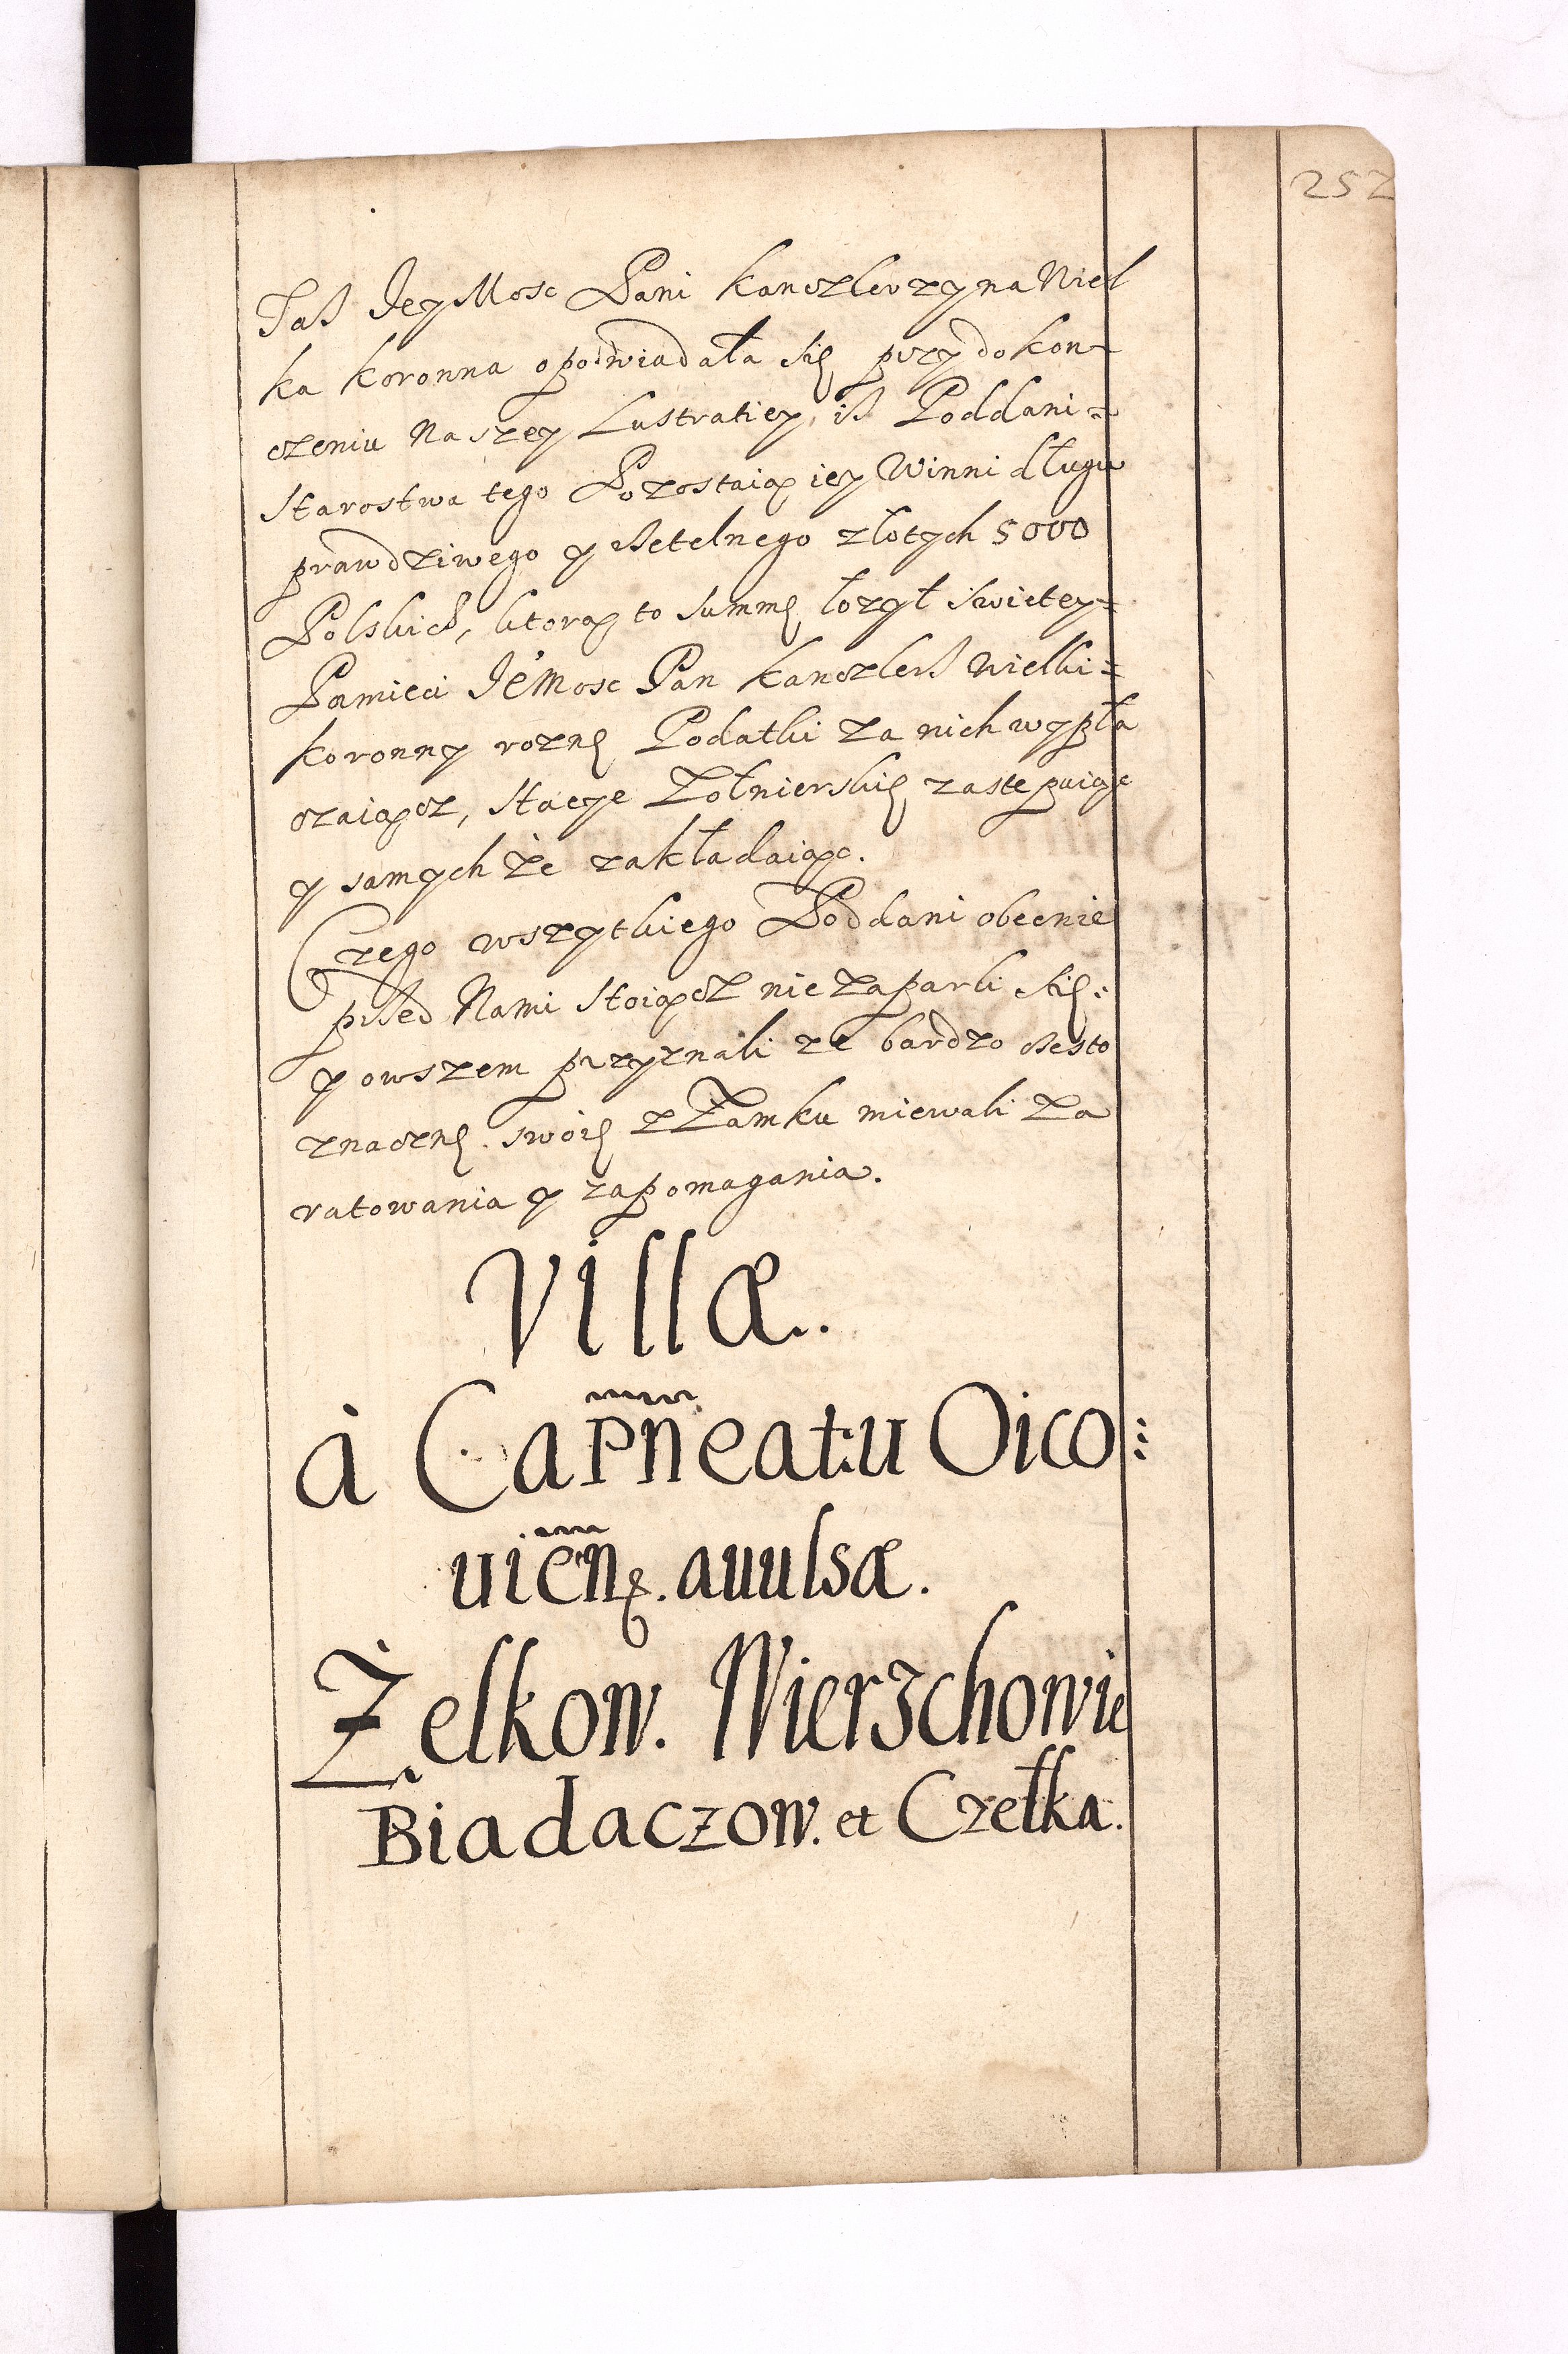 252
Taß Jey Mosc Pani Kanczlerzyna Wiel
ka Koronna opowiadała się przy dokon-
czeniu Naszey Lustratiey, iß Poddani=
Starostwa tego Pozostaią iey Winni długu
prawdziwego y rzetelnego złotych 5000
Polskich, ktorą to Summę łozył swietey=
Pamieci Je͛mosc Pan Kanczlerz Wielki=
Koronny roznę Podatki za nich wypła
czaiącz, Stacye Zołnierskię zastepuiąc
y samych że zakładaiąc.
Czego wszytkiego Poddani obecnie
przed Nami Stoiącz nie zaparli się:
y owszem przyznali ze bardzo często
znacznę swoię z Zamku miewali za
ratowania y zapomagania.
Villæ..
à Capñeatu Oico:
uieñę. auulsæ.
Żelkow. Wierzchowie
Biadaczow. et Czełka.